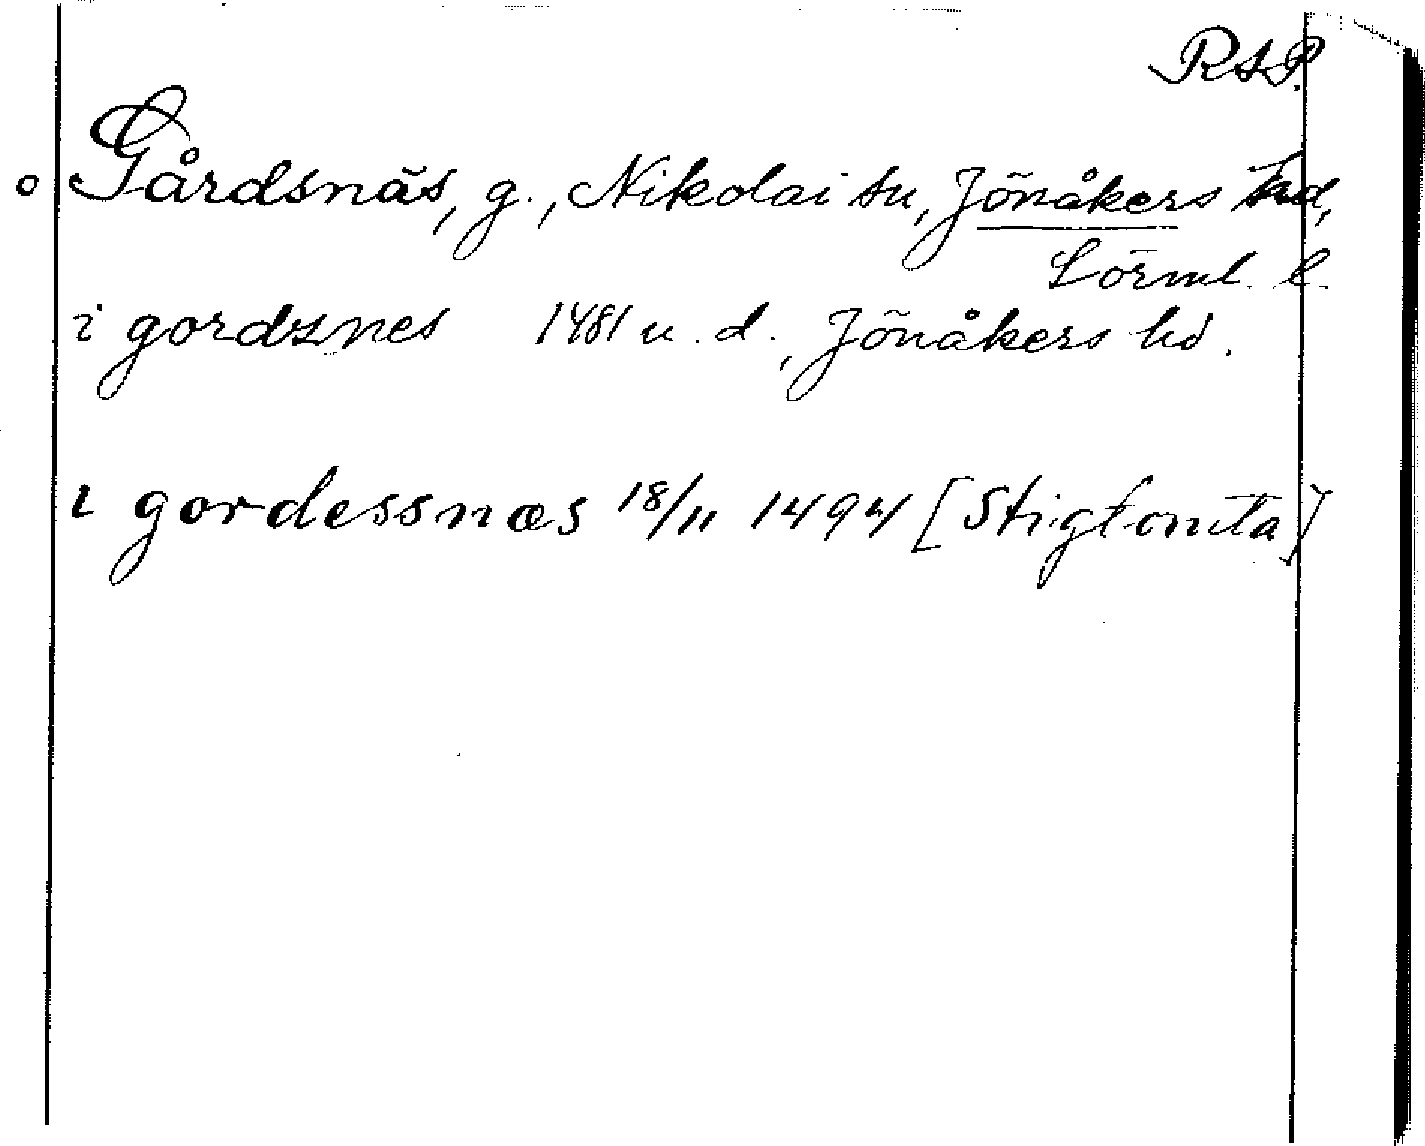 RAP.
o Gårdsnäs, g., Nikolai sn, Jönåkers hd,
Sörml. l.
i gordznes 1481 u. d., Jönåkers hd.
i gordessnæs 18/11 1494 [Stigtomta]